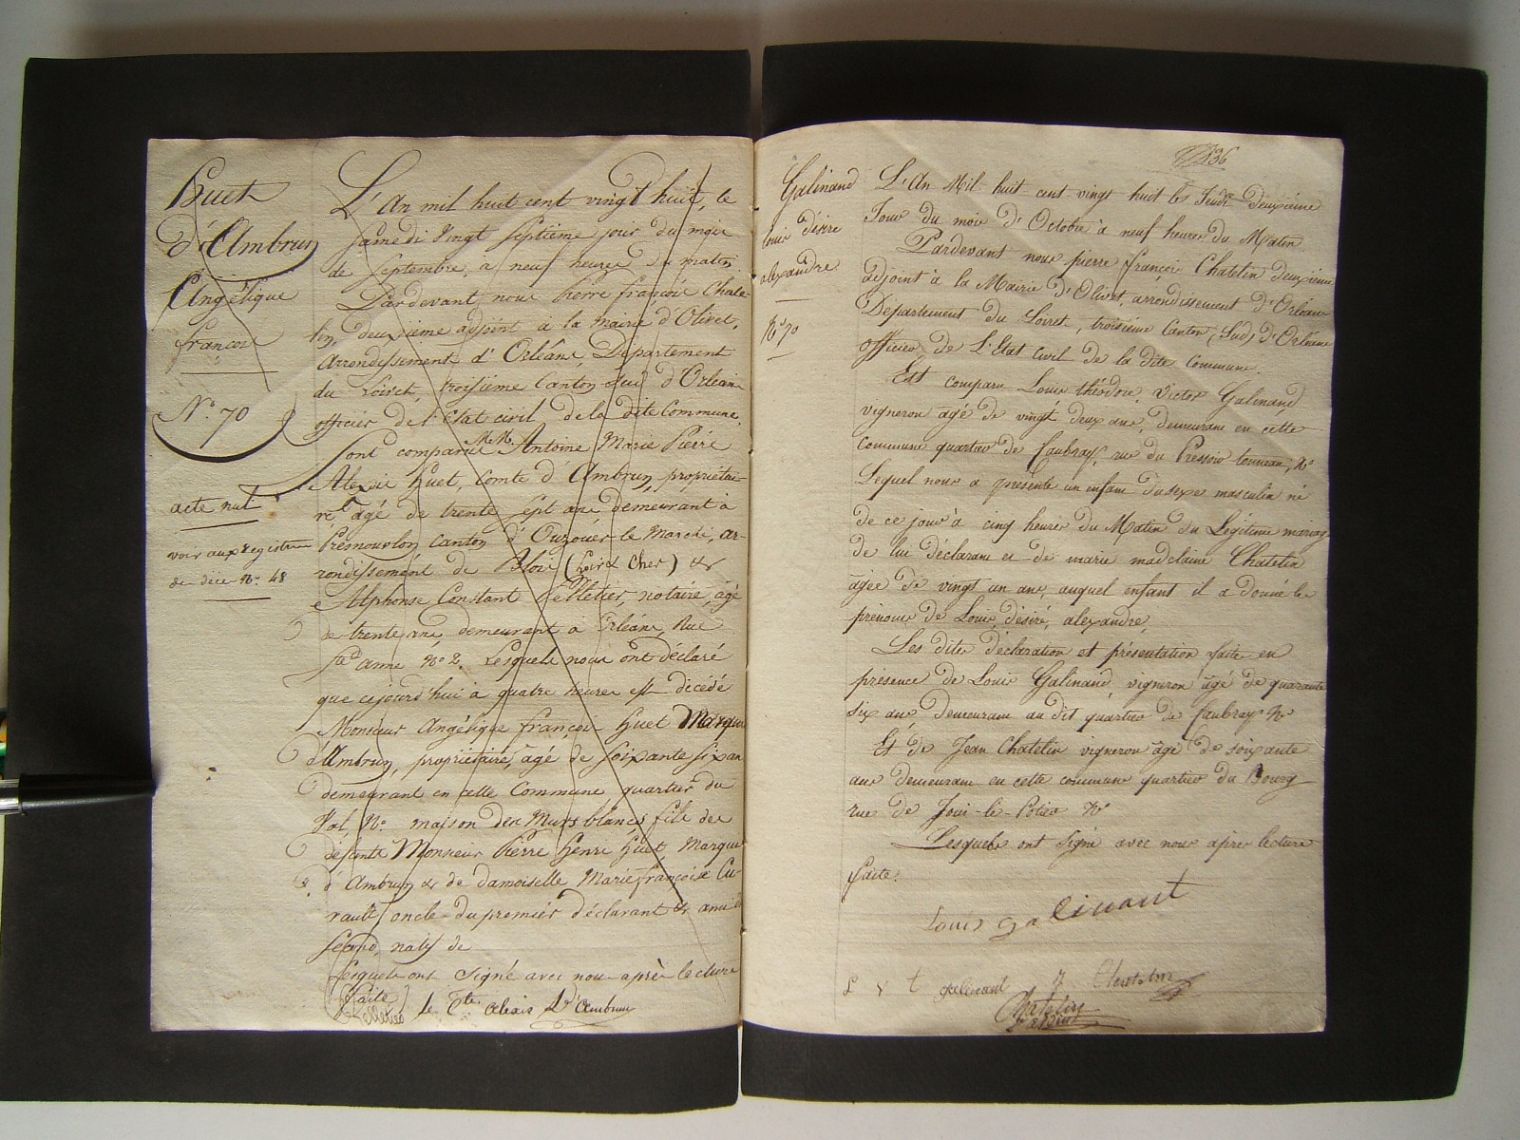 Huet
d'Ambrun
Angélique
françois
N.° 70
acte nul
voir aux registres
de décè N.° 48
L'An mil huit cent vingt huit, le
samedi vingt septième jour du mois
de septembre, à neuf heures du matin
Pardevant nous Pierre françois Chate-
lin, deuxième adjoint à la mairie d'Olivet,
arrondissement d'Orléans, Département
du Loiret, troisième Canton Sud d'Orléans
officier de l'Etat civil de la dite Commune.
Sont comparus M.M. Antoine Marie Pierre
Alexis Huet, Comte d'Ambrun, propriétai-
re, âgé de trente sept ans demeurant à
Prenouvlon, canton d'Ouzouer le Marché, ar-
rondissement de Blois (Loir & Cher) &
Alphonse Constant Pelletier, notaire, âgé
de trente ans, demeurant à Orléans, Rue
Ste anne N.° 2. Lesquels nous ont déclaré
que cejourd'hui à quatre heures est décédé
Monsieur Angélique françois Huet Marquis
d'Ambrun, propriétaire, âgé de soixante six ans
demeurant en cette Commune quartier du
Val, N.° maison des Murs blancs, fils des
défunts Monsieur Pierre Henri Huet Marquis
d'Ambrun & de damoiselle Marie françoise Cu-
rault, oncle du premier déclarant & ami du
second, natif de
Lesquels ont signé avec nous après lecture
faite
le Cte Alexis d'Ambrun
136
Galinand
louis désire
alexandre
N.° 70
L'An Mil huit cent vingt huit le Jeudi deuxième
Jour du mois d'Octobre à neuf heures du Matin
Pardevant nous pierre françois Chatelin deuxième
adjoint à la Mairie d'Olivet, arrondissement d'Orléans
Département du Loiret, troisième Canton, Sud, d'Orléans
officier de L'Etat Civil de la dite Commune.
Est comparu Louis théodore, Victor Galinand,
vigneron âgé de vingt deux ans, demeurant en cette
commune quartier de Caubray, rue du Pressoir tonneau, N.°
Lequel nous a présenté un enfant du sexe masculin né
de ce jour à cinq heures du Matin du Légitime mariage
de lui déclarant et de marie madelaine Chatelin
âgée de vingt un ans, auquel enfant il a donné les
prénoms de Louis, désiré, alexandre,
Les dites déclaration et présentation faite en
présence de Louis Galinand, vigneron âgé de quarante
six ans, demeurant au dit quartier de Caubray N.°
Et de Jean Chatelin vigneron âgé de soixante
ans demeurant en cette commune quartier du Bourg
rue de Joui-le-Potier N.°
Lesquels ont signé avec nous après lecture
faite.
Louis galinant
L V t galinand J Chatelin
Chatelin